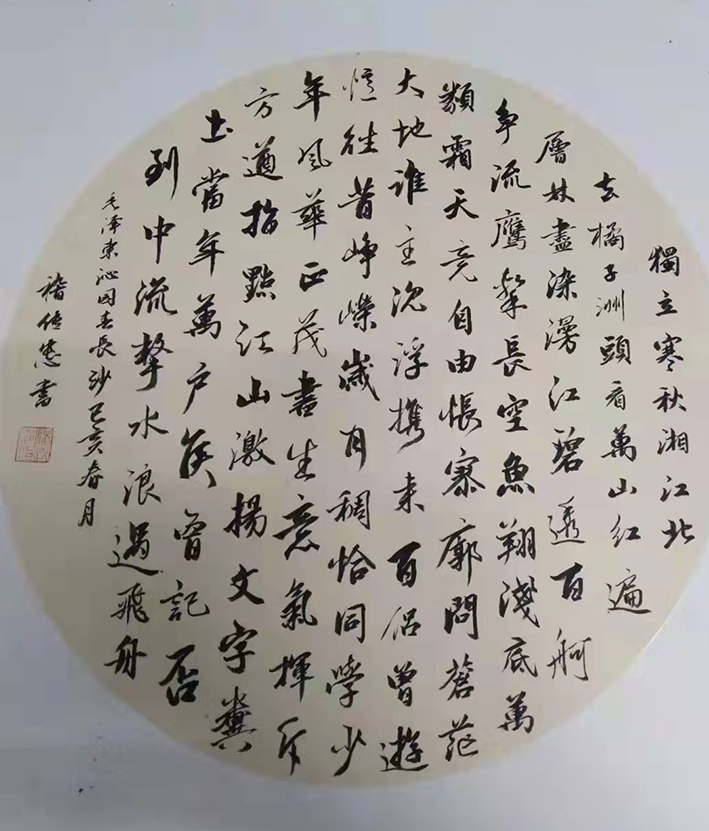 獨立寒秋湘江北
去橘子洲頭看萬山红遍
層林盡染漫江碧透百舸
争流鷹擊長空魚翔淺底萬
類霜天竞自由悵寥廓問蒼茫
大地谁主沉浮携来百侣曾遊
憶往昔崢嶸歲月稠恰同學少
年风華正茂書生意氣揮斥
方遒指點江山激揚文字糞
土當年萬户侯曾記否
到中流擊水浪遏飛舟
毛泽東沁园春長沙己亥春月
書